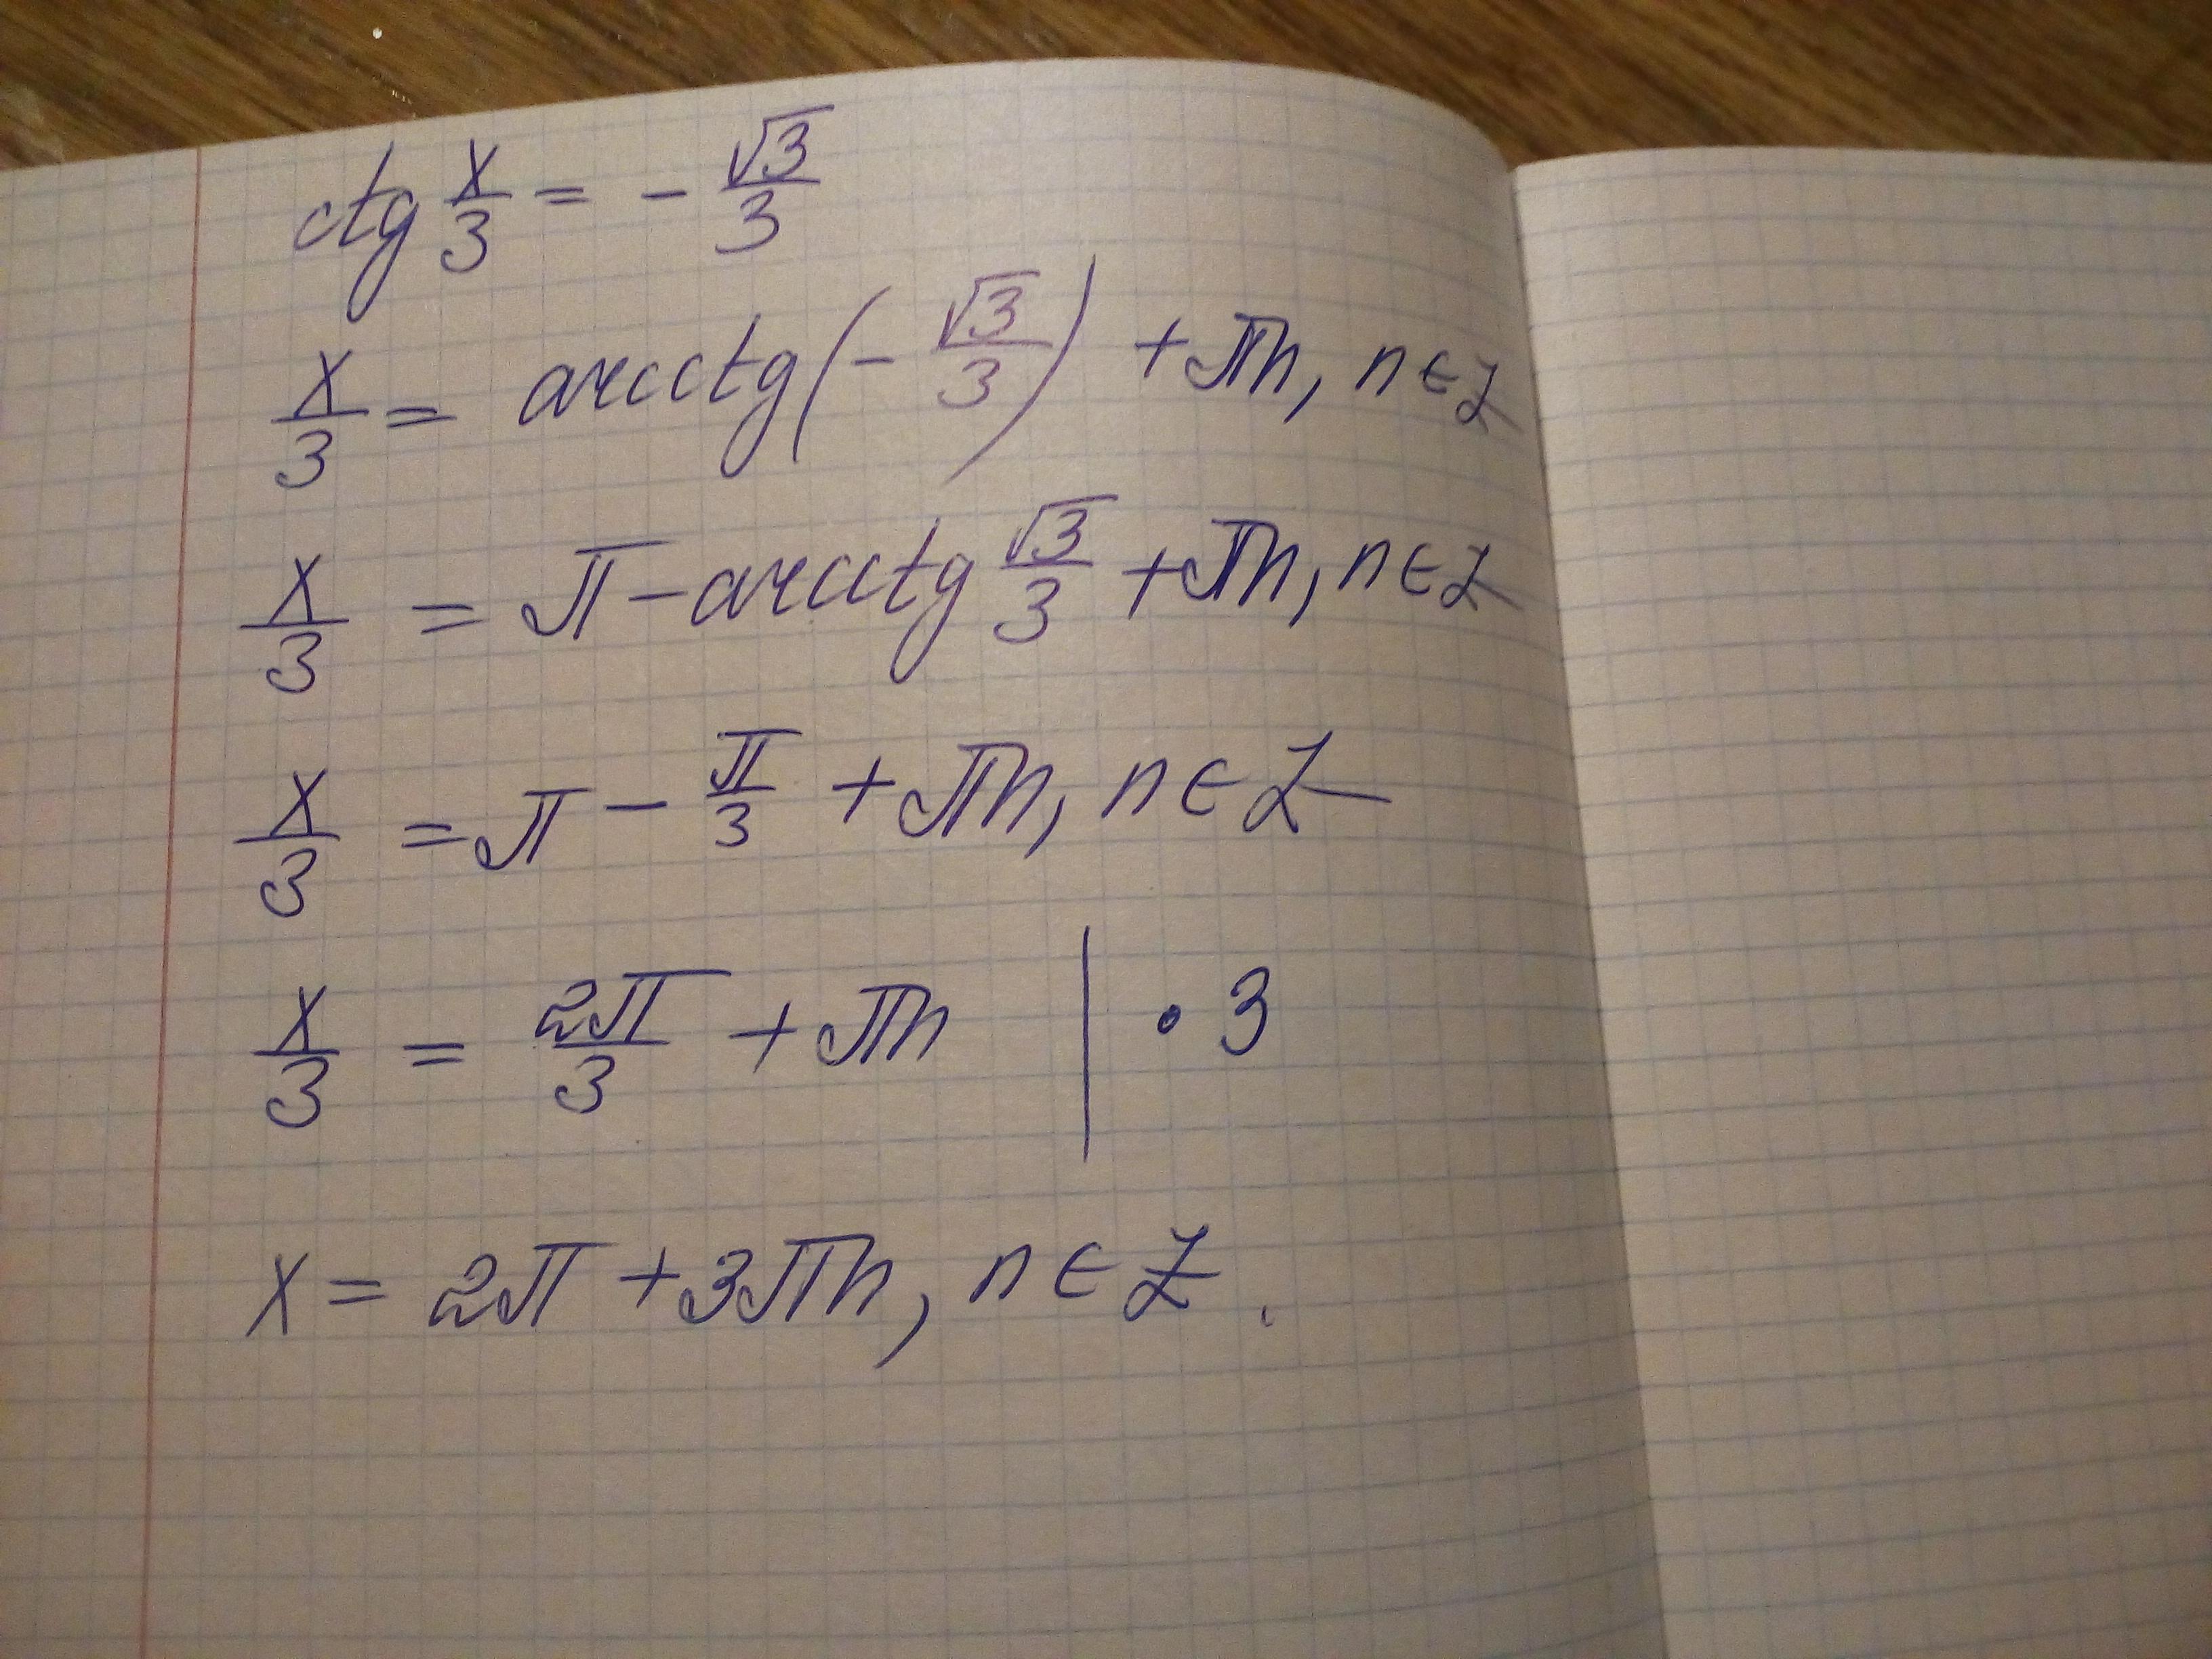 ctg x/3 = - √3/3
x/3 = arcctg(- √3/3) + πn, n ∈ Z
x/3 = π - arcctg √3/3 + πn, n ∈ Z
x/3 = π - π/3 + πn, n ∈ Z
x/3 = 2π/3 + πn | · 3
x = 2π + 3πn, n ∈ Z.